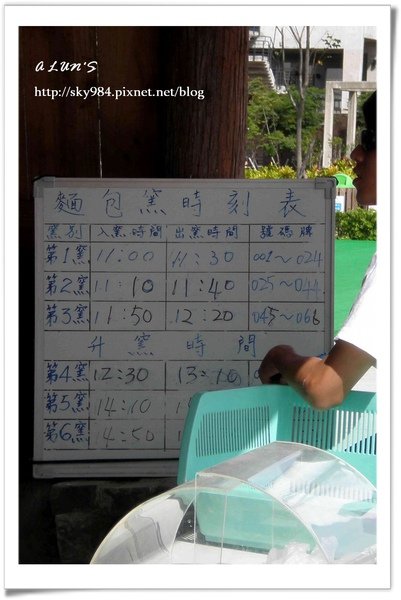 ALUN'S
http://sky984.pixnet.net/blog
麵包窯時刻表
窯別 入窯時間 出窯時間 號碼牌
第1窯 11:00 11:30 001~024
第2窯 11:10 11:40 025~044
第3窯 11:50 12:20 045~066
升窯時間
第4窯 12:30 13:10
第5窯 14:10
第6窯 14:50